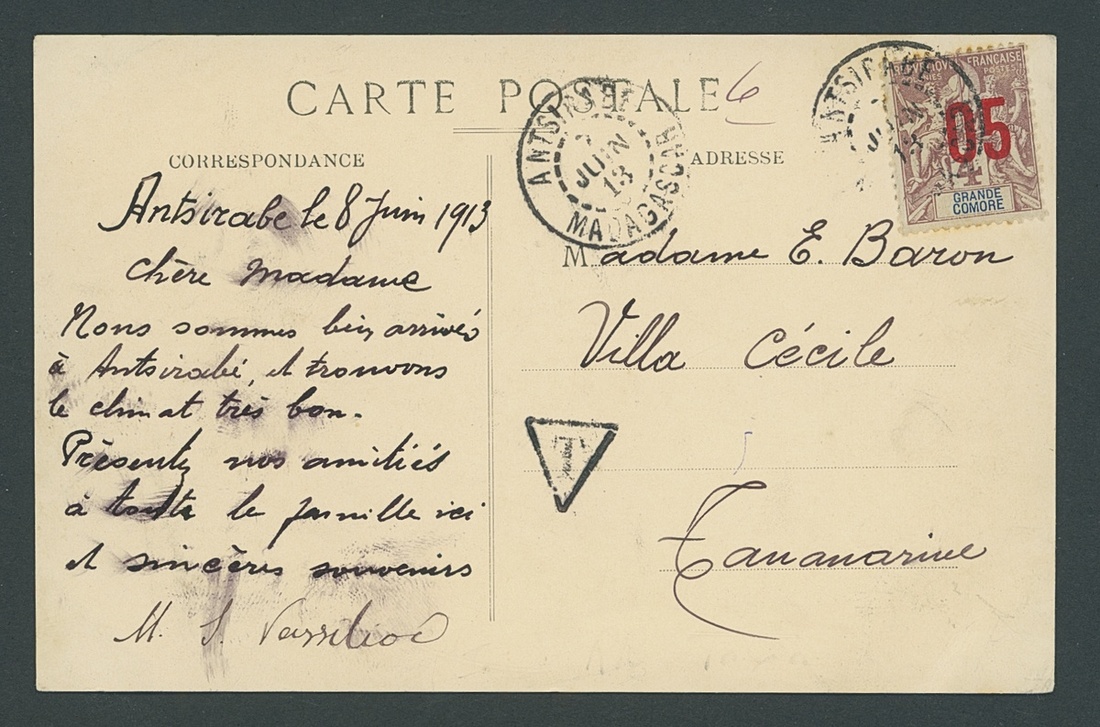 CARTE POSTALE
6
CORRESPONDANCE
Antsirabe le 8 Juin 1913
Chère Madame
Nous sommes bien arrivés
à Antsirabé, et trouvons
le climat très bon.
Présentez nos amitiés
à toute la famille ici
et sincères souvenirs
M. S.
ANTSIRABE
JUIN
13
MADAGASCAR
ANTSIRABE
JUIN
13
COLONIES
POSTES
FRANÇAISE
05
4
GRANDE
COMORE
ADRESSE
Madame E. Baron
Villa Cécile
T
Tananarive